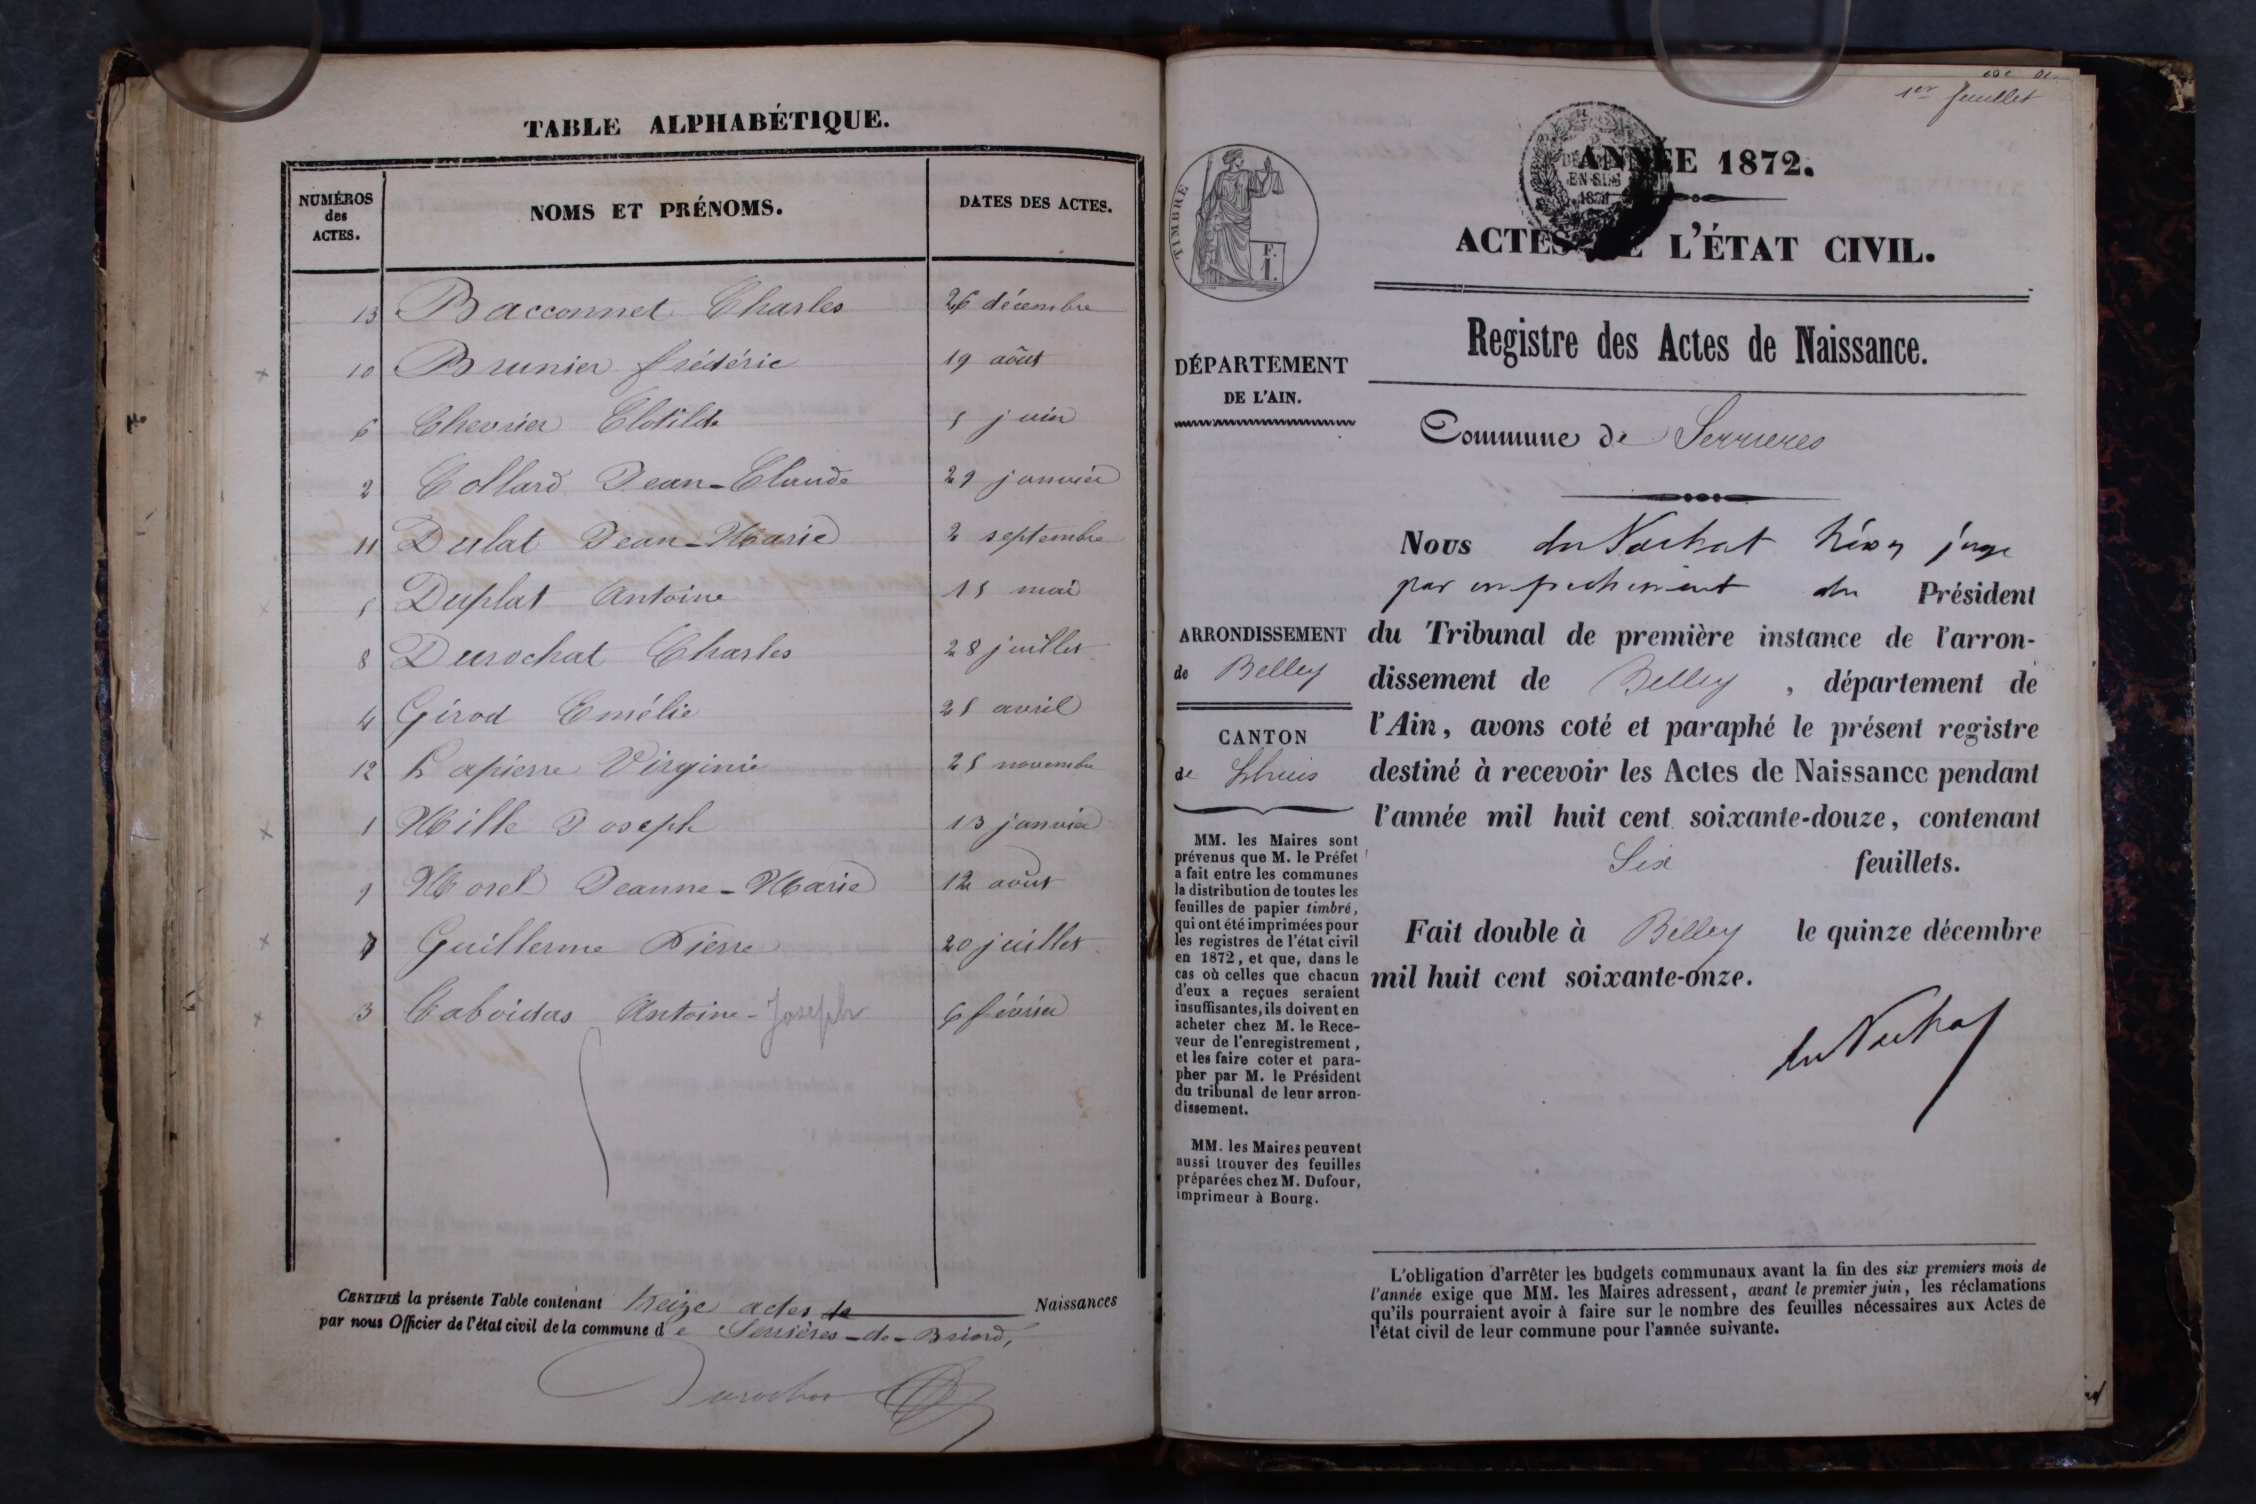 TABLE ALPHABÉTIQUE.
NUMÉROS des ACTES. NOMS ET PRÉNOMS. DATES DES ACTES.
13 Bacconnet Charles 26 décembre
10 Brunier frédéric 19 août
6 Chevrier Clotilde 5 juin
2 Collard Jean-Claude 29 janvier
11 Dulat Jean-Marie 2 septembre
5 Duplat Antoine 15 mai
8 Durochat Charles 28 juillet
4 Girod Emélie 25 avril
12 Lapierre Virginie 25 novembre
1 Mille Joseph 13 janvier
9 Morel Jeanne-Marie 12 août
7 Guillerme Pierre 20 juillet
3 Caboidas Antoine-Joseph 6 février
CERTIFIÉ la présente Table contenant treize actes de Naissances
par nous Officier de l'état civil de la commune de Serrières-de-Briord,
Durochat
1er feuillet
TIMBRE
F.
1.
EN SUS
1871
ANNÉE 1872.
ACTES DE L'ÉTAT CIVIL.
Registre des Actes de Naissance.
DÉPARTEMENT
DE L'AIN.
Commune de Serrieres
ARRONDISSEMENT
de Belley
CANTON
de Lhuis
MM. les Maires sont
prévenus que M. le Préfet
a fait entre les communes
la distribution de toutes les
feuilles de papier timbré,
qui ont été imprimées pour
les registres de l'état civil
en 1872, et que, dans le
cas où celles que chacun
d'eux a reçues seraient
insuffisantes, ils doivent en
acheter chez M. le Rece-
veur de l'enregistrement,
et les faire coter et para-
pher par M. le Président
du tribunal de leur arron-
dissement.
MM. les Maires peuvent
aussi trouver des feuilles
préparées chez M. Dufour,
imprimeur à Bourg.
Nous du Nachat juge
par empêchement du Président
du Tribunal de première instance de l'arron-
dissement de Belley, département de
l'Ain, avons coté et paraphé le présent registre
destiné à recevoir les Actes de Naissance pendant
l'année mil huit cent soixante-douze, contenant
Six feuillets.
Fait double à Belley le quinze décembre
mil huit cent soixante-onze.
du Nachat
L'obligation d'arrêter les budgets communaux avant la fin des six premiers mois de
l'année exige que MM. les Maires adressent, avant le premier juin, les réclamations
qu'ils pourraient avoir à faire sur le nombre des feuilles nécessaires aux Actes de
l'état civil de leur commune pour l'année suivante.